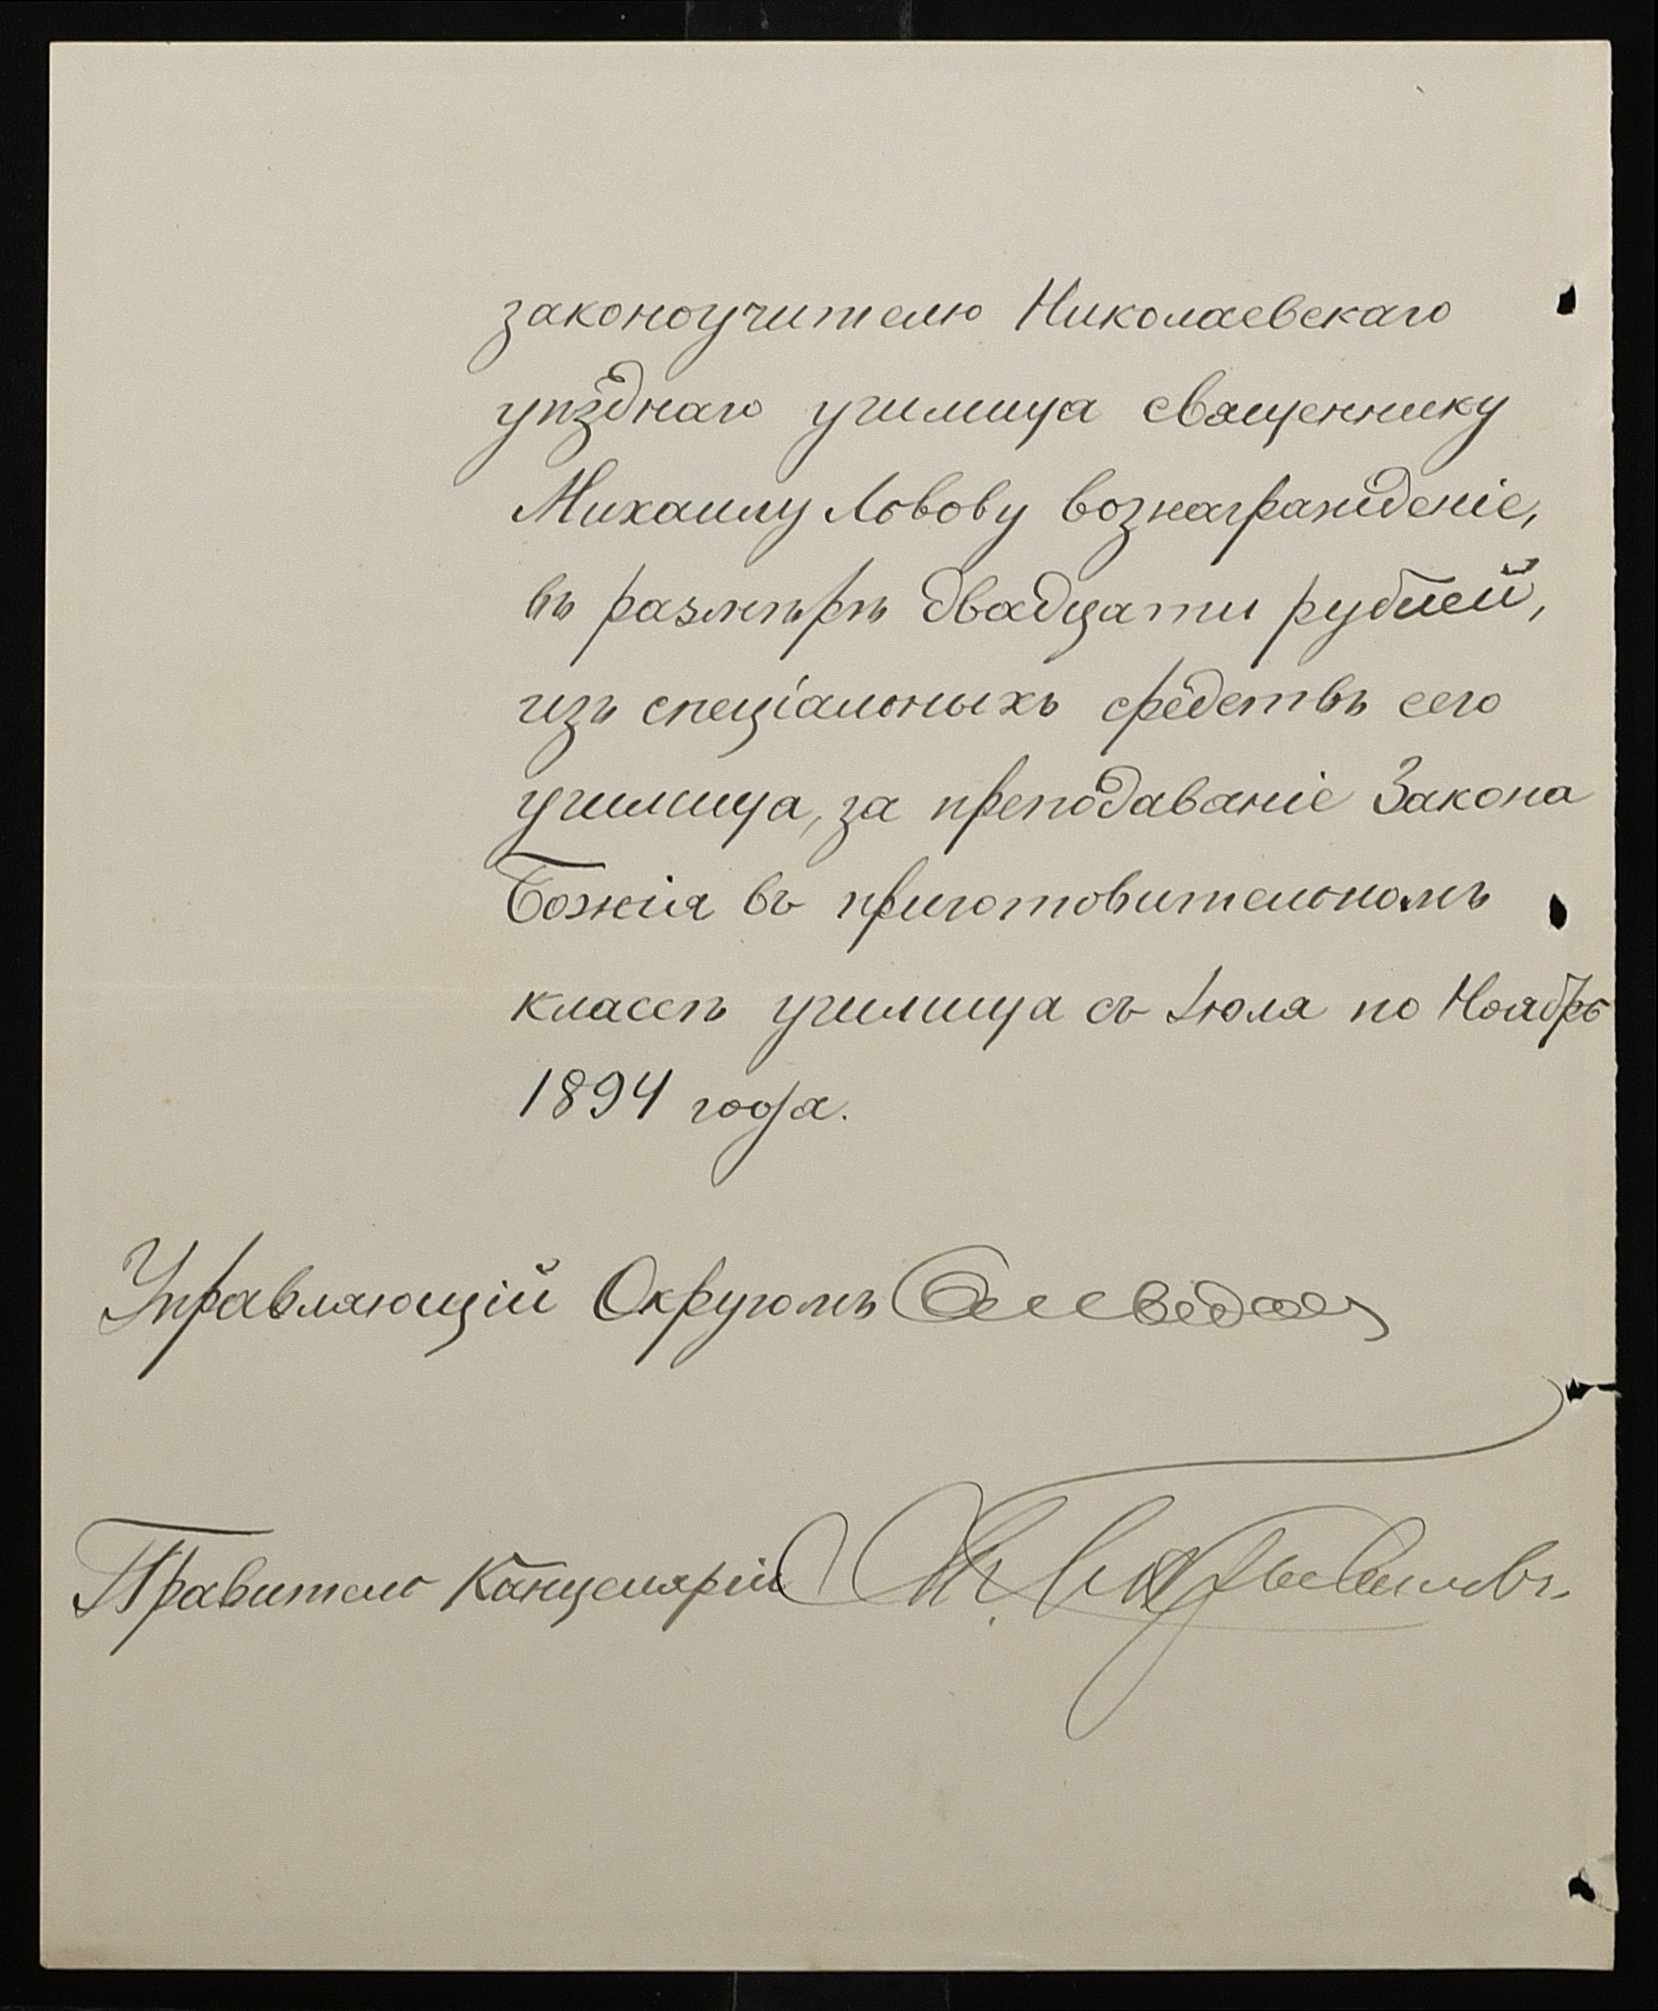 законоучителю Николаевскаго
уѣзднаго училища священнику
Михаилу Львову вознагражденіе,
въ размѣрѣ двадцати рублей,
изъ спеціальныхъ средствъ сего
училища, за преподаваніе Закона
Божія въ приготовительномъ
классѣ училища съ Іюля по Ноябрь
1894 года.
Управляющій Округомъ
Правитель Канцеляріи